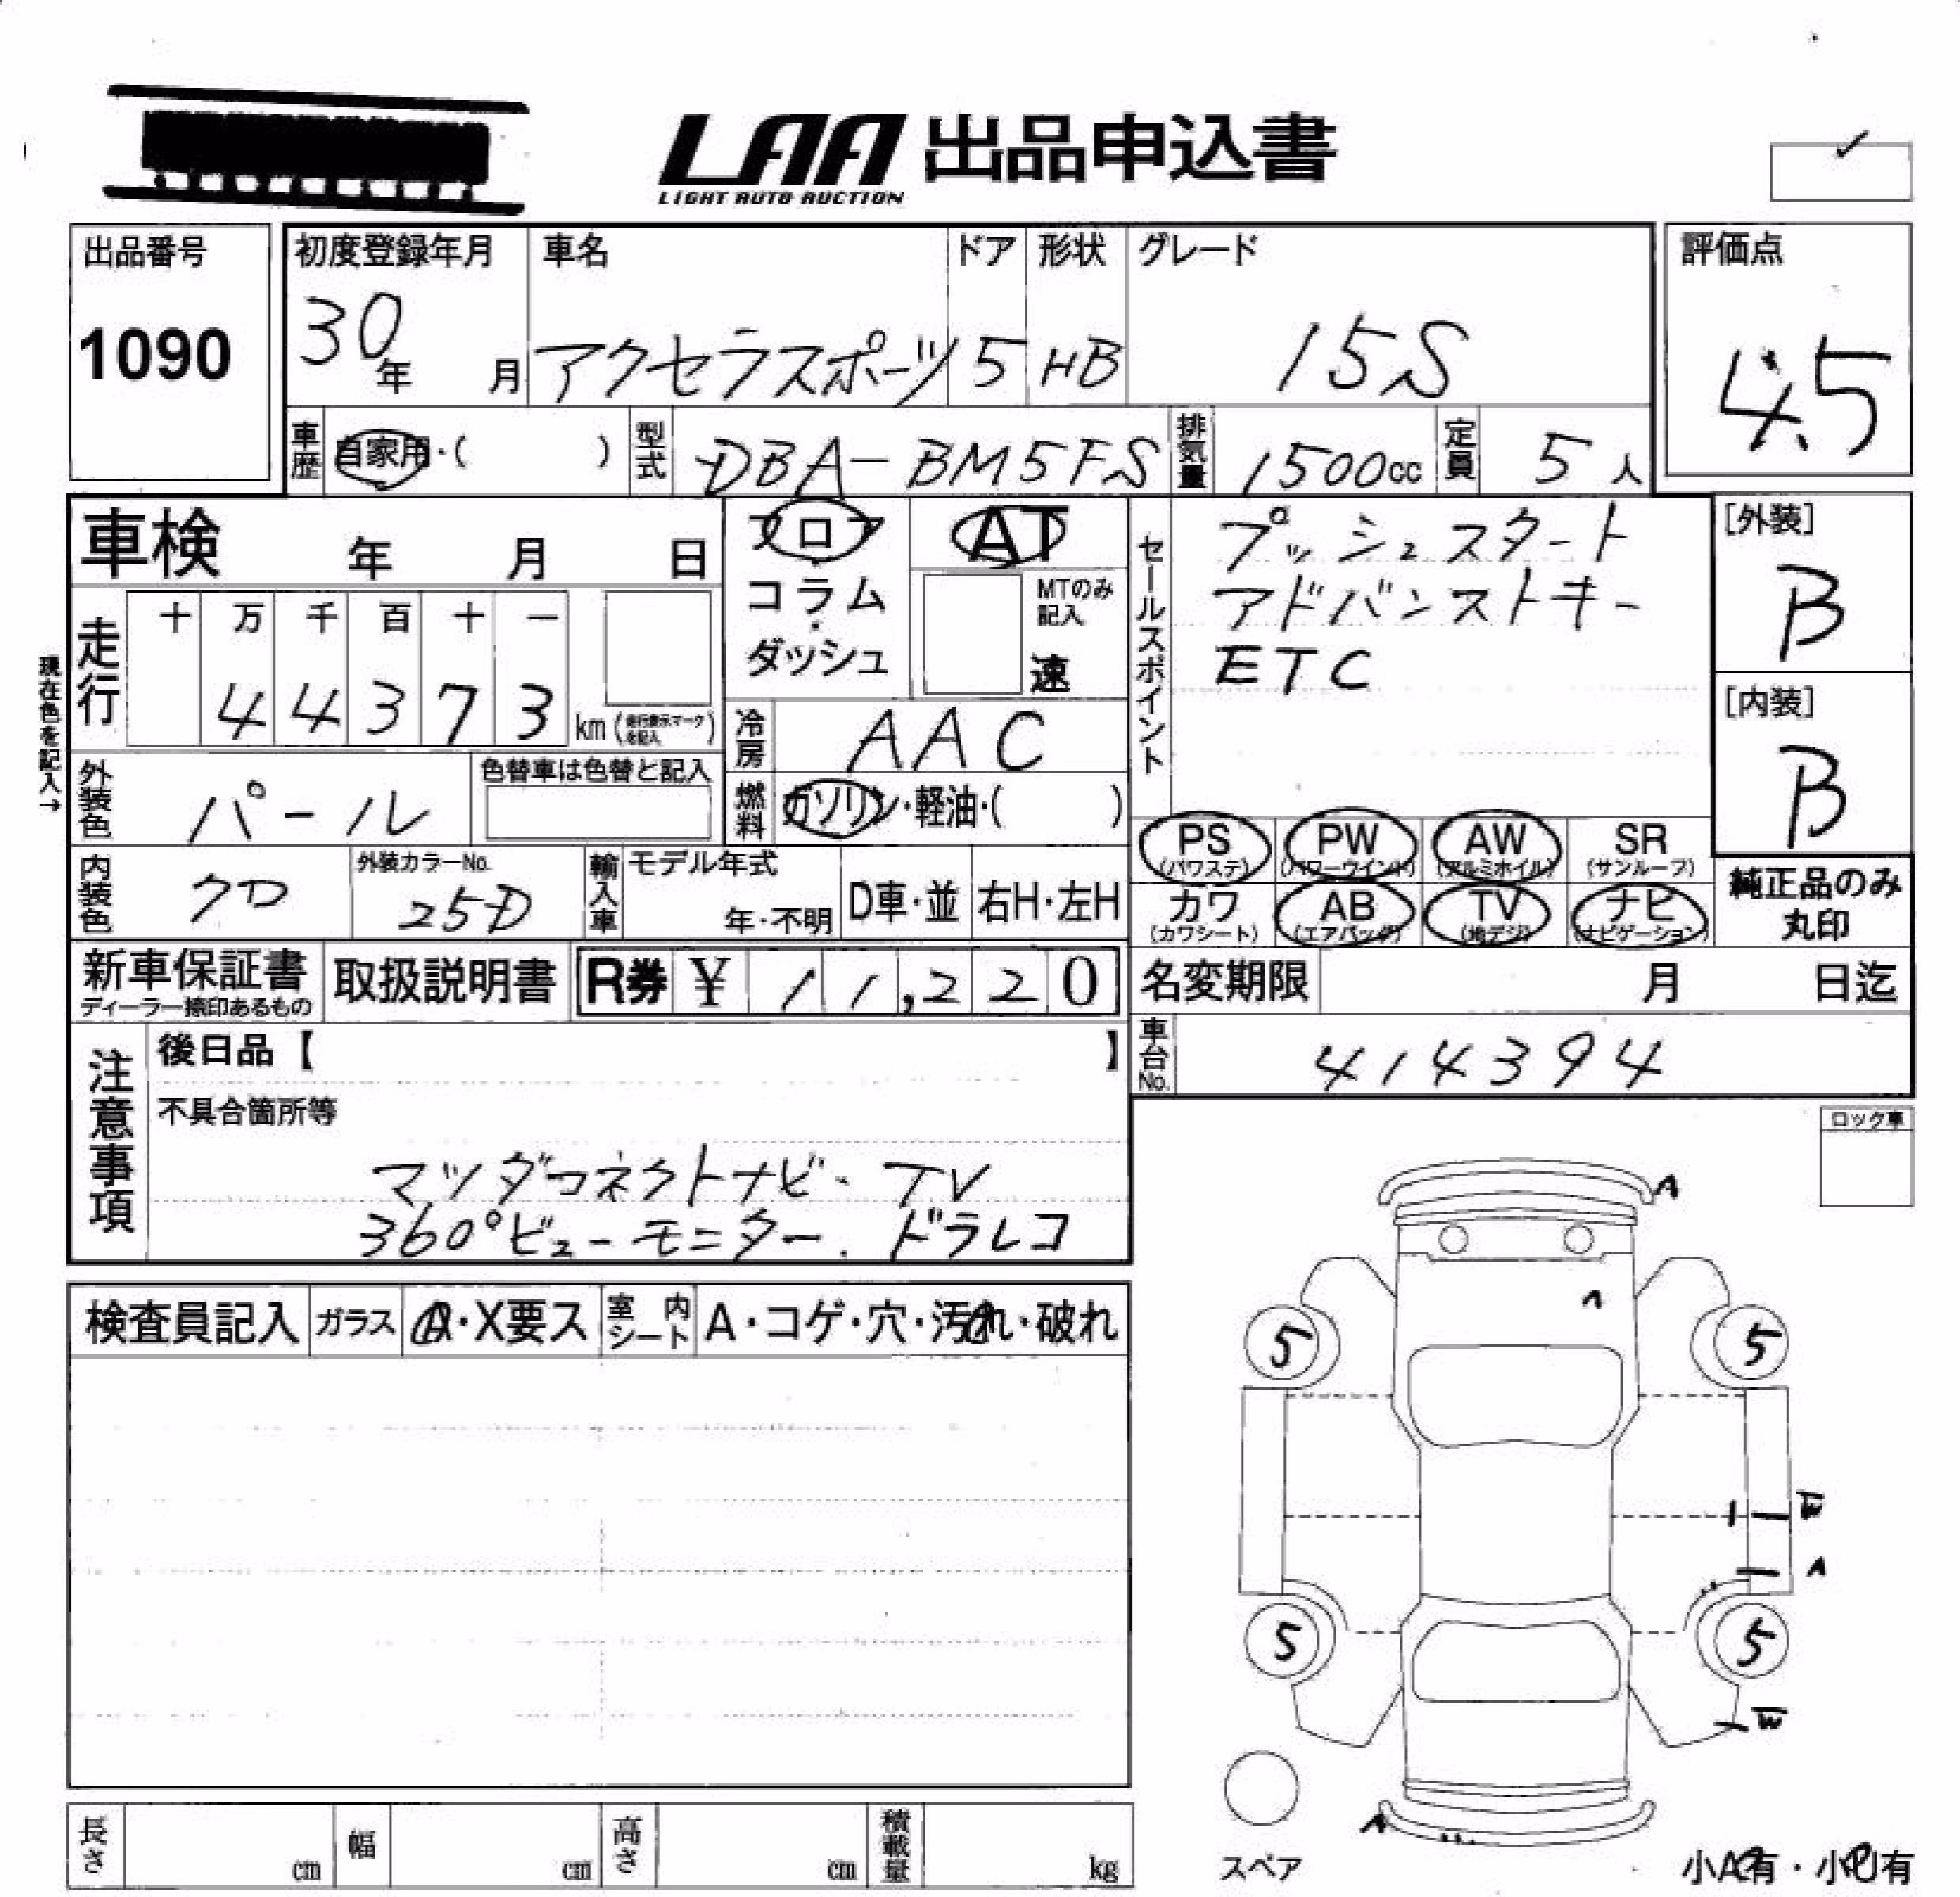 LAA 出品申込書
LIGHT AUTO AUCTION
出品番号
1090
初度登録年月 車名 ドア 形状 グレード
30年 月 アクセラスポーツ 5 HB 15S
評価点
4.5
車歴 自家用・( ) 型式 DBA-BM5FS 排気量 1500cc 定員 5人
車検 年 月 日
フロア
コラム
・
ダッシュ
AT
MTのみ
記入
速
セールスポイント
プッシュスタート
アドバンストキー
ETC
[外装]
B
[内装]
B
現在色を記入→
走行
十 万 千 百 十 一
4 4 3 7 3 km (走行表示マークを記入)
冷房 AAC
外装色 パール
色替車は色替と記入
燃料 ガソリン・軽油・( )
PS PW AW SR
(パワステ) (パワーウインド) (アルミホイル) (サンルーフ)
カワ AB TV ナビ
(カワシート) (エアバッグ) (地デジ) (ナビゲーション)
純正品のみ
丸印
内装色 クロ
外装カラーNo.
25D
輸入車
モデル年式
年・不明
D車・並 右H・左H
新車保証書
ディーラー捺印あるもの
取扱説明書
R券 ¥ 11,220
名変期限 月 日迄
車台No. 414394
注意事項
後日品【 】
不具合箇所等
マツダコネクトナビ・TV
360°ビューモニター. ドラレコ
ロック車
検査員記入 ガラス ・X要ス 室内シート A・コゲ・穴・汚れ・破れ
A
A
5 5
W
A
5 5
W
A
スペア
小A有・小U有
長さ cm 幅 cm 高さ cm 積載量 kg